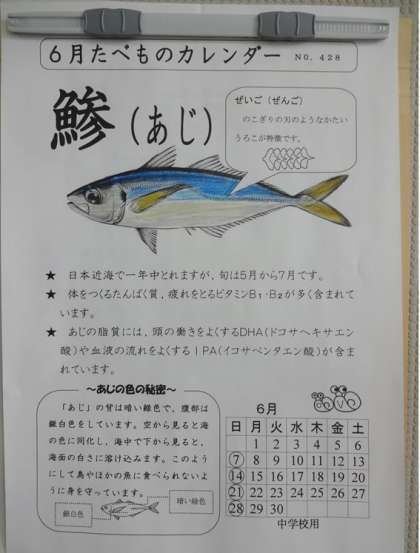 6月たべものカレンダー NO. 428
鯵(あじ)
ぜいご(ぜんご)
のこぎりの刃のようなかたい
うろこが特徴です。
★ 日本近海で一年中とれますが、旬は5月から7月です。
★ 体をつくるたんぱく質、疲れをとるビタミンB₁・B₂が多く含まれて
います。
★ あじの脂質には、頭の働きをよくするDHA(ドコサヘキサエン
酸)や血液の流れをよくするIPA(イコサペンタエン酸)が含ま
れています。
~あじの色の秘密~
「あじ」の背は暗い緑色で、腹部は
銀白色をしています。空から見ると海
の色に同化し、海中で下から見ると、
海面の白さに溶け込みます。このよう
にして鳥やほかの魚に食べられないよ
うに身を守っています。
銀白色
暗い緑色
6月
日 月 火 水 木 金 土
1 2 3 4 5 6
7 8 9 10 11 12 13
14 15 16 17 18 19 20
21 22 23 24 25 26 27
28 29 30
中学校用